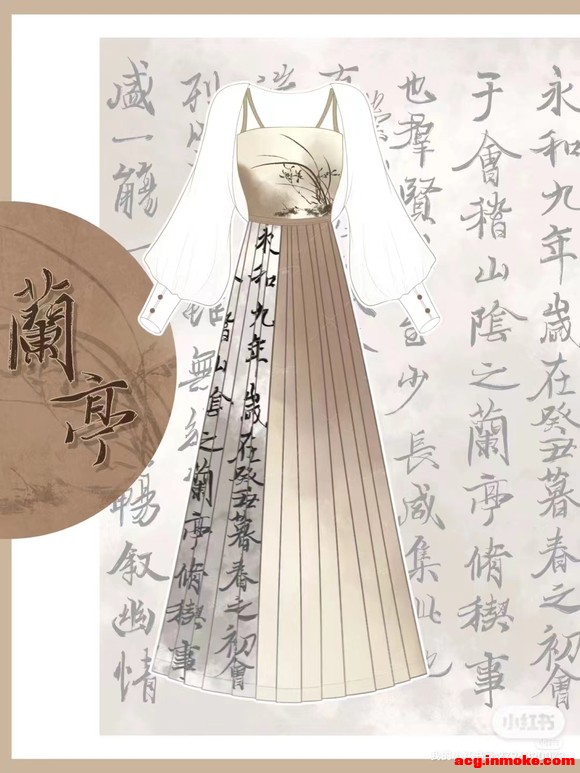 永和九年歲在癸丑暮春之初會
于會稽山陰之蘭亭脩稧事
也羣賢
少長咸集此地
列
無
盛一觴一
暢叙幽情
永和九年歲在癸丑暮春之初會
稽山陰之蘭亭脩稧事
蘭亭
小红书
acg.inmoke.com